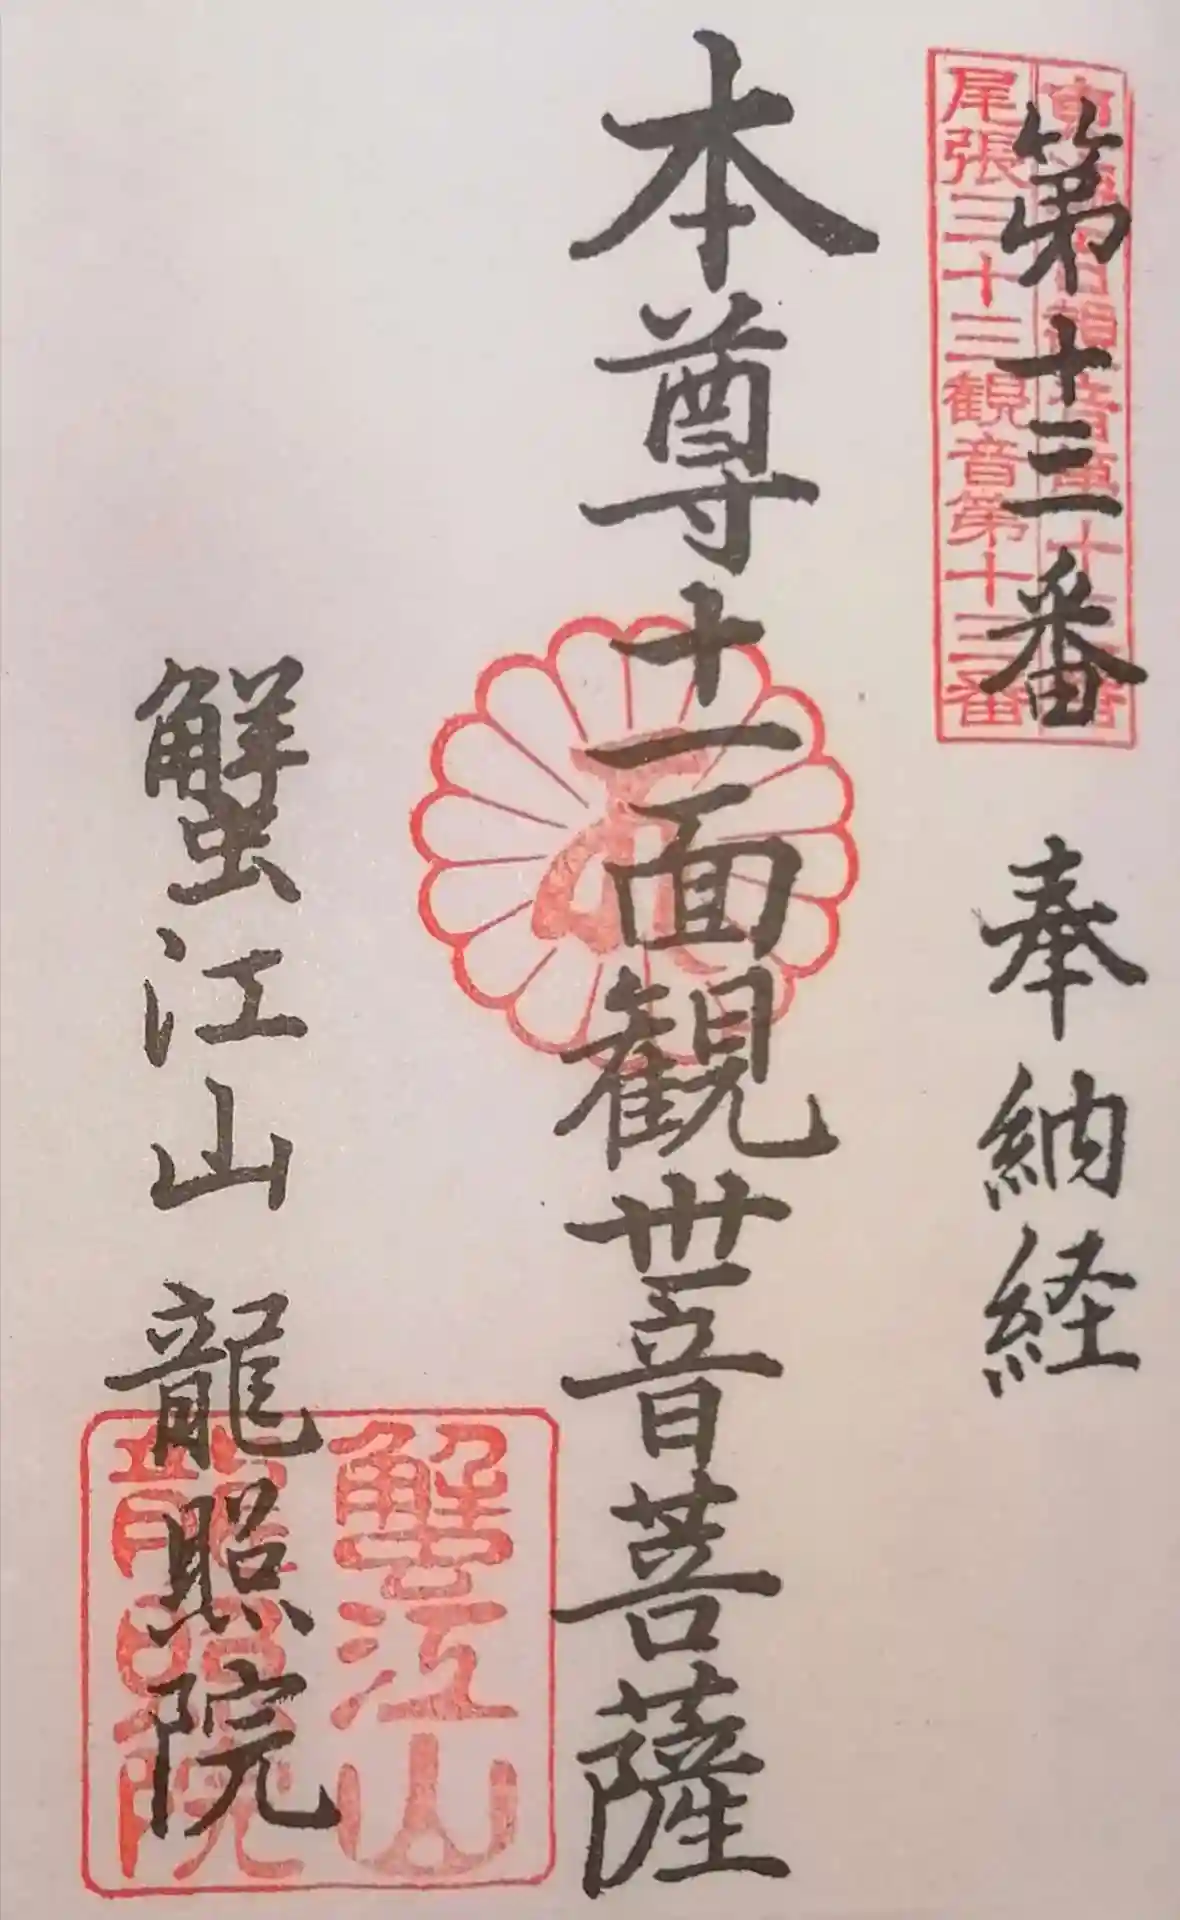 第十三番　奉納経
尾張三十三観音第十三番
本尊十一面観世音菩薩
蟹江山　龍照院
蟹江山
龍照院